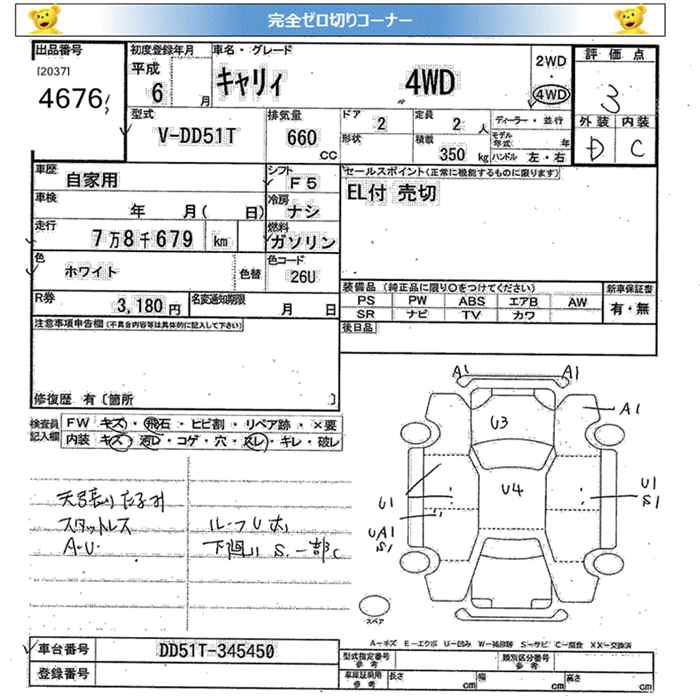 完全ゼロ切りコーナー
出品番号
[2037]
4676
初度登録年月
平成
6 月
車名・グレード
キャリィ 4WD
2WD
4WD
評価点
3
外装 内装
D C
型式
V-DD51T
排気量
660 cc
ドア 2
形状
定員 2 人
積載 350 kg
ディーラー・並行
モデル年式 年
ハンドル 左・右
車歴
自家用
シフト
F5
車検
年 月( 日)
冷房
ナシ
走行
7万8千679 km
燃料
ガソリン
色
ホワイト
色替
色コード
26U
R券
3,180円
名変通知期限
月 日
セールスポイント(正常に機能するものに限ります)
EL付 売切
装備品(純正品に限り○をつけてください)
PS PW ABS エアB AW
SR ナビ TV カワ
新車保証書
有・無
後日品
注意事項申告欄(不具合内容等は具体的に記入して下さい)
修復歴 有〔箇所 〕
検査員記入欄
FW キズ・飛石・ヒビ割・リペア跡・×要
内装 キズ・汚レ・コゲ・穴・スレ・キレ・破レ
天張りたるみ
スタットレス
A.U.
ルーフU大
下廻りS.一部C
A1 A1
A1
U3
U4
U1
U1
S1
UA1
S1
スペア
A-キズ E-エクボ U-凹み W-補修跡 S-サビ C-腐食 XX-交換済
車台番号
DD51T-345450
登録番号
型式指定番号
参考
類別区分番号
参考
車庫証明用
参考
長さ cm
幅 cm
高さ cm